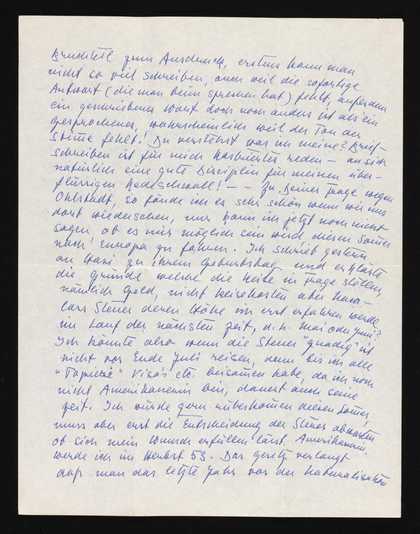 Bruchteil zum Ausdruck, erstens kann man
nicht so viel schreiben, auch weil die sofortige
Antwort (die man beim sprechen hat) fehlt, ausserdem
ein geschriebenes Wort doch noch anders ist als ein
gesprochenes, wahrscheinlich weil der Ton der
Stimme fehlt! Du verstehst was ich meine? Brief-
schreiben ist für mich kastriertes reden — an sich
natürlich eine gute Disziplin für meinen über-
flüssigen Redeschwall! — — Zu Deiner Frage wegen
Ohlstadt, so fände ich es sehr schön wenn wir uns
dort wiedersehen, nur kann ich jetzt noch nicht
sagen ob es mir möglich sein wird diesen Sommer
nach Europa zu fahren. Ich schrieb gestern
an zu ihrem Geburtstag und erklärte
die Gründe welche die Reise in Frage stellen,
nämlich Geld, nicht Reisekosten aber
Steuer deren Höhe ich erst erfahren werde
im Lauf der nächsten Zeit, d.h. Mai oder Juni?
Ich könnte also wenn die Steuer "gnädig" ist
nicht vor Ende Juli reisen, denn bis ich alle
"Papiere" Visa's etc beisammen habe, da ich noch
nicht Amerikanerin bin, dauert auch seine
Zeit. Ich würde gern rüberkommen diesen Sommer,
muss aber erst die Entscheidung der Steuer abwarten
ob sich mein Wunsch erfüllen lässt. Amerikanerin
werde ich im Herbst 53. Das Gesetz verlangt
dass man das letzte Jahr vor der Naturalisation